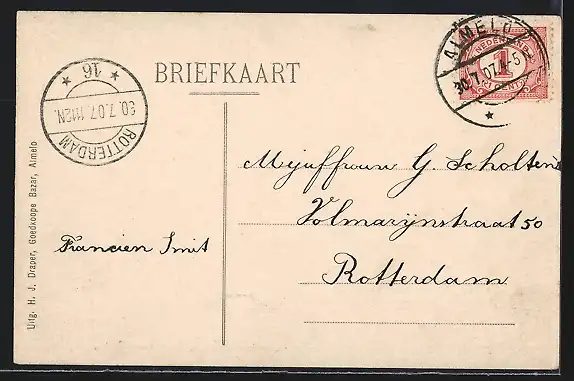 BRIEFKAART
ALMELO
30.7.07.4-5
NEDERLAND
1
CENT
16
30.7.07.1112N.
ROTTERDAM
Mejuffrouw G Scholtens
Volmarijnstraat 50
Rotterdam
Francien Smit
Uitg. H. J. Draper, Goedkoope Bazar, Almelo